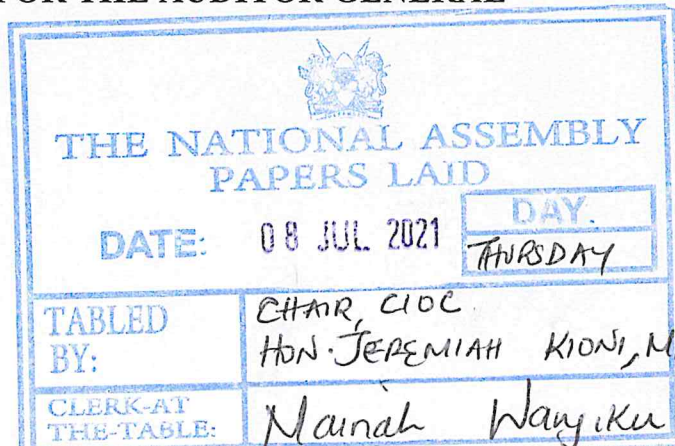 FOR THE AUDITOR GENERAL
THE NATIONAL ASSEMBLY
PAPERS LAID
DATE: 08 JUL 2021
DAY.
THURSDAY
TABLED BY:
CHAIR, CIOC
HON. JEREMIAH KIONI, M
CLERK-AT THE-TABLE:
Mainah Wanjiku